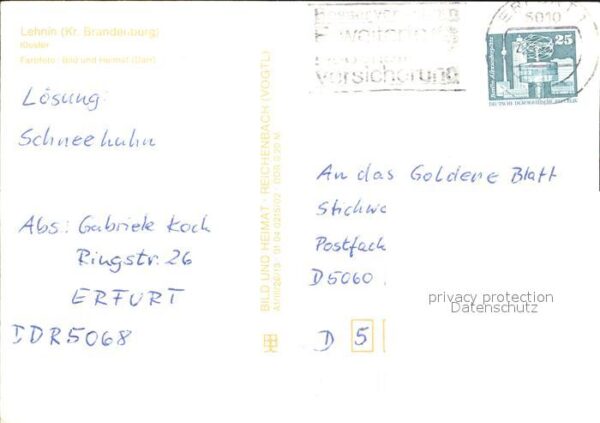 Lehnin (Kr. Brandenburg)
Kloster
Farbfoto: Bild und Heimat
Lösung:
Schneehuhn
Abs: Gabriele Koch
Ringstr. 26
ERFURT
DDR 5068
BILD UND HEIMAT · REICHENBACH (VOGTL)
versicherung
ERFURT 1
5010
25
Berlin, Alexanderplatz
DEUTSCHE DEMOKRATISCHE REPUBLIK
An das Goldene Blatt
Stichwo
Postfach
D5060
D 5
privacy protection
Datenschutz